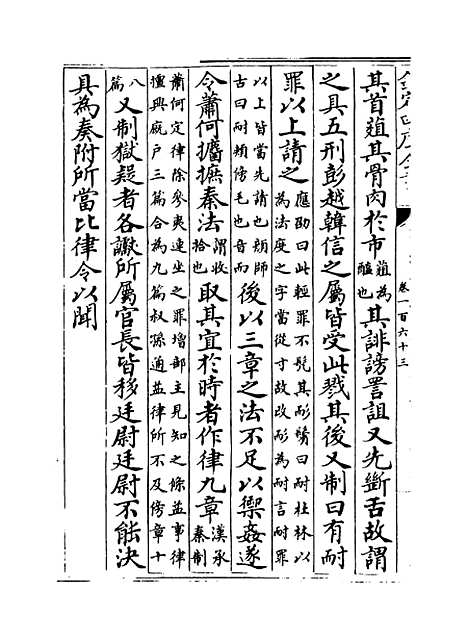 欽定四庫全書
卷一百六十三
其首葅其骨肉於市葅為醢也其誹謗詈詛又先斷舌故謂
之具五刑彭越韓信之屬皆受此戮其後又制曰有耐
罪以上請之應劭曰此輕罪不髠其耏鬢曰耐杜林以為法度之字當從寸故改耏為耐言耐罪
以上皆當先請也顔師古曰耐頰傍毛也音而後以三章之法不足以禦姦遂
令蕭何攟摭秦法謂收拾也取其宜於時者作律九章漢承秦制
蕭何定律除參夷連坐之罪增部主見知之條益事律擅興廐户三篇合為九篇叔孫通益律所不及傍章十
八篇又制獄疑者各讞所屬官長皆移廷尉廷尉不能決
具為奏附所當比律令以聞